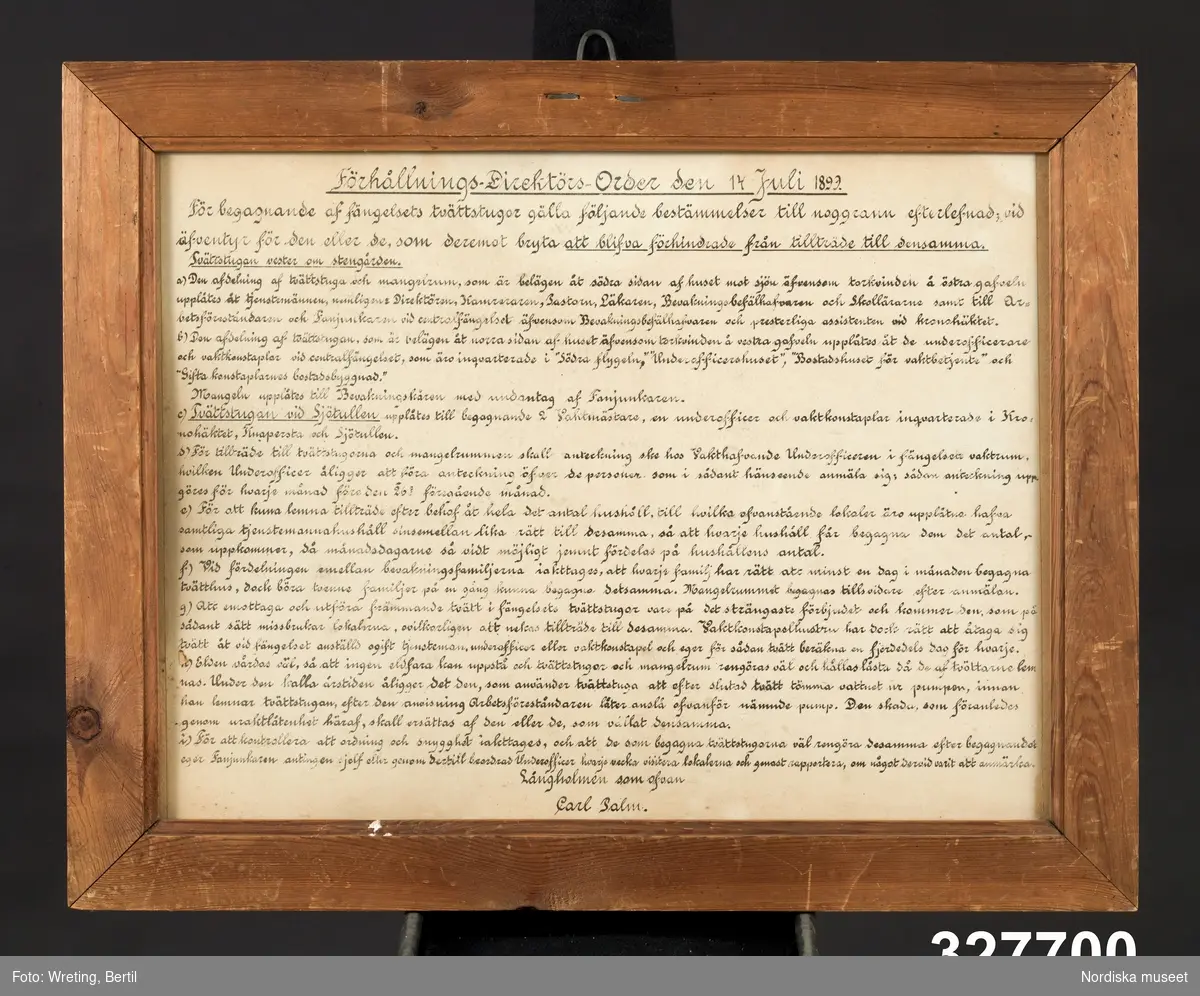 Förhållnings-Direktörs-Order den 14 Juli 1899.
För begagnande af fängelsets tvättstugor gälla följande bestämmelser till noggrann efterlefnad, vid
äfventyr för den eller de, som deremot bryta att blifva förhindrade från tillträde till densamma.
Tvättstugan vester om stengården.
a) Den afdelning af tvättstuga och mangelrum, som är belägen åt södra sidan af huset mot sjön äfvensom torkvinden å östra gafveln
upplåtes åt tjenstemännen, nemligen: Direktören, Kamreraren, Pastorn, Läkaren, Bevakningsbefälhafvaren och Skollärarne samt till Ar-
betsföreståndaren och Fanjunkaren vid centralfängelset äfvensom Bevakningsbefälhafvaren och presterliga assistenten vid kronohäktet.
b) Den afdelning af tvättstugan, som är belägen åt norra sidan af huset äfvensom torkvinden å vestra gafveln upplåtes åt de underofficerare
och vaktkonstaplar vid centralfängelset, som äro inqvarterade i "Södra flygeln," "Underofficershuset", "Bostadshuset för vaktbetjente" och
"Gifta konstaplarnes bostadsbyggnad."
Mangeln upplåtes till Bevakningskåren med undantag af Fanjunkaren.
c) Tvättstugan vid Sjötullen upplåtes till begagnande 2 Vaktmästare, en underofficer och vaktkonstaplar inqvarterade i Kro-
nohäktet, Knapersta och Sjötullen.
d) För tillträde till tvättstugorna och mangelrummen skall anteckning ske hos Vakthafvande Underofficeren i fängelsets vaktrum,
hvilken Underofficer åligger att föra anteckning öfver de personer som i sådant hänseende anmäla sig; sådan anteckning upp-
göres för hvarje månad före den 20: föregående månad.
e) För att kunna lemna tillträde efter behof åt hela det antal hushåll, till hvilka ofvanstående lokaler äro upplåtna hafva
samtliga tjenstemannahushåll sinsemellan lika rätt till desamma, så att hvarje hushåll får begagna dem det antal,
som uppkommer, då månadsdagarne så vidt möjligt jemnt fördelas på hushållens antal.
f.) Vid fördelningen emellan bevakningsfamiljerna iakttages, att hvarje familj har rätt att minst en dag i månaden begagna
tvätthus, dock böra tvenne familjer på en gång kunna begagna detsamma. Mangelrummet begagnas tillsvidare efter anmälan.
g) Att emottaga och utföra främmande tvätt i fängelsets tvättstugor vare på det strängaste förbjudet och kommer den, som på
sådant sätt missbrukar lokalerna, ovilkorligen att nekas tillträde till desamma. Vaktkonstapelhustru har dock rätt att åtaga sig
tvätt åt vid fängelset anställd ogift tjensteman, underofficer eller vaktkonstapel och eger för sådan tvätt beräkna en fjerdedels dag för hvarje.
h) Elden vårdas väl, så att ingen eldfara kan uppstå och tvättstugor och mangelrum rengöras väl och hållas låsta då de af tvättarne lem
nas. Under den kalla årstiden åligger det den, som använder tvättstuga att efter slutad tvätt tömma vattnet ur pumpen, innan
han lemnar tvättstugan, efter den anvisning Arbetsföreståndaren låter anslå ofvanför nämnde pump. Den skada, som föranledes
genom uraktlåtenhet häraf, skall ersättas af den eller de, som vållat densamma.
i) För att kontrollera att ordning och snygghet iakttages, och att de som begagna tvättstugorna väl rengöra desamma efter begagnandet
eger Fanjunkaren antingen sjelf eller genom dertill beordrad Underofficer hvarje vecka visitera lokalerna och genast rapportera, om något dervid varit att anmärka.
Långholmen som ofvan
Carl Palm.
327700
Foto: Wreting, Bertil
Nordiska museet